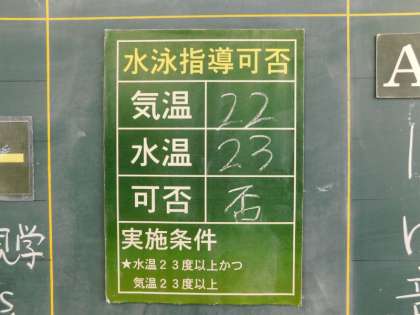 水泳指導可否
気温 22
水温 23
可否 否
実施条件
★水温23度以上かつ
気温23度以上
A
見学